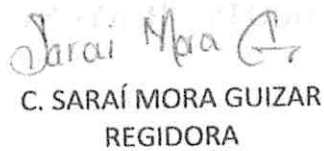 Sarai Mora G
C. SARAÍ MORA GUIZAR
REGIDORA